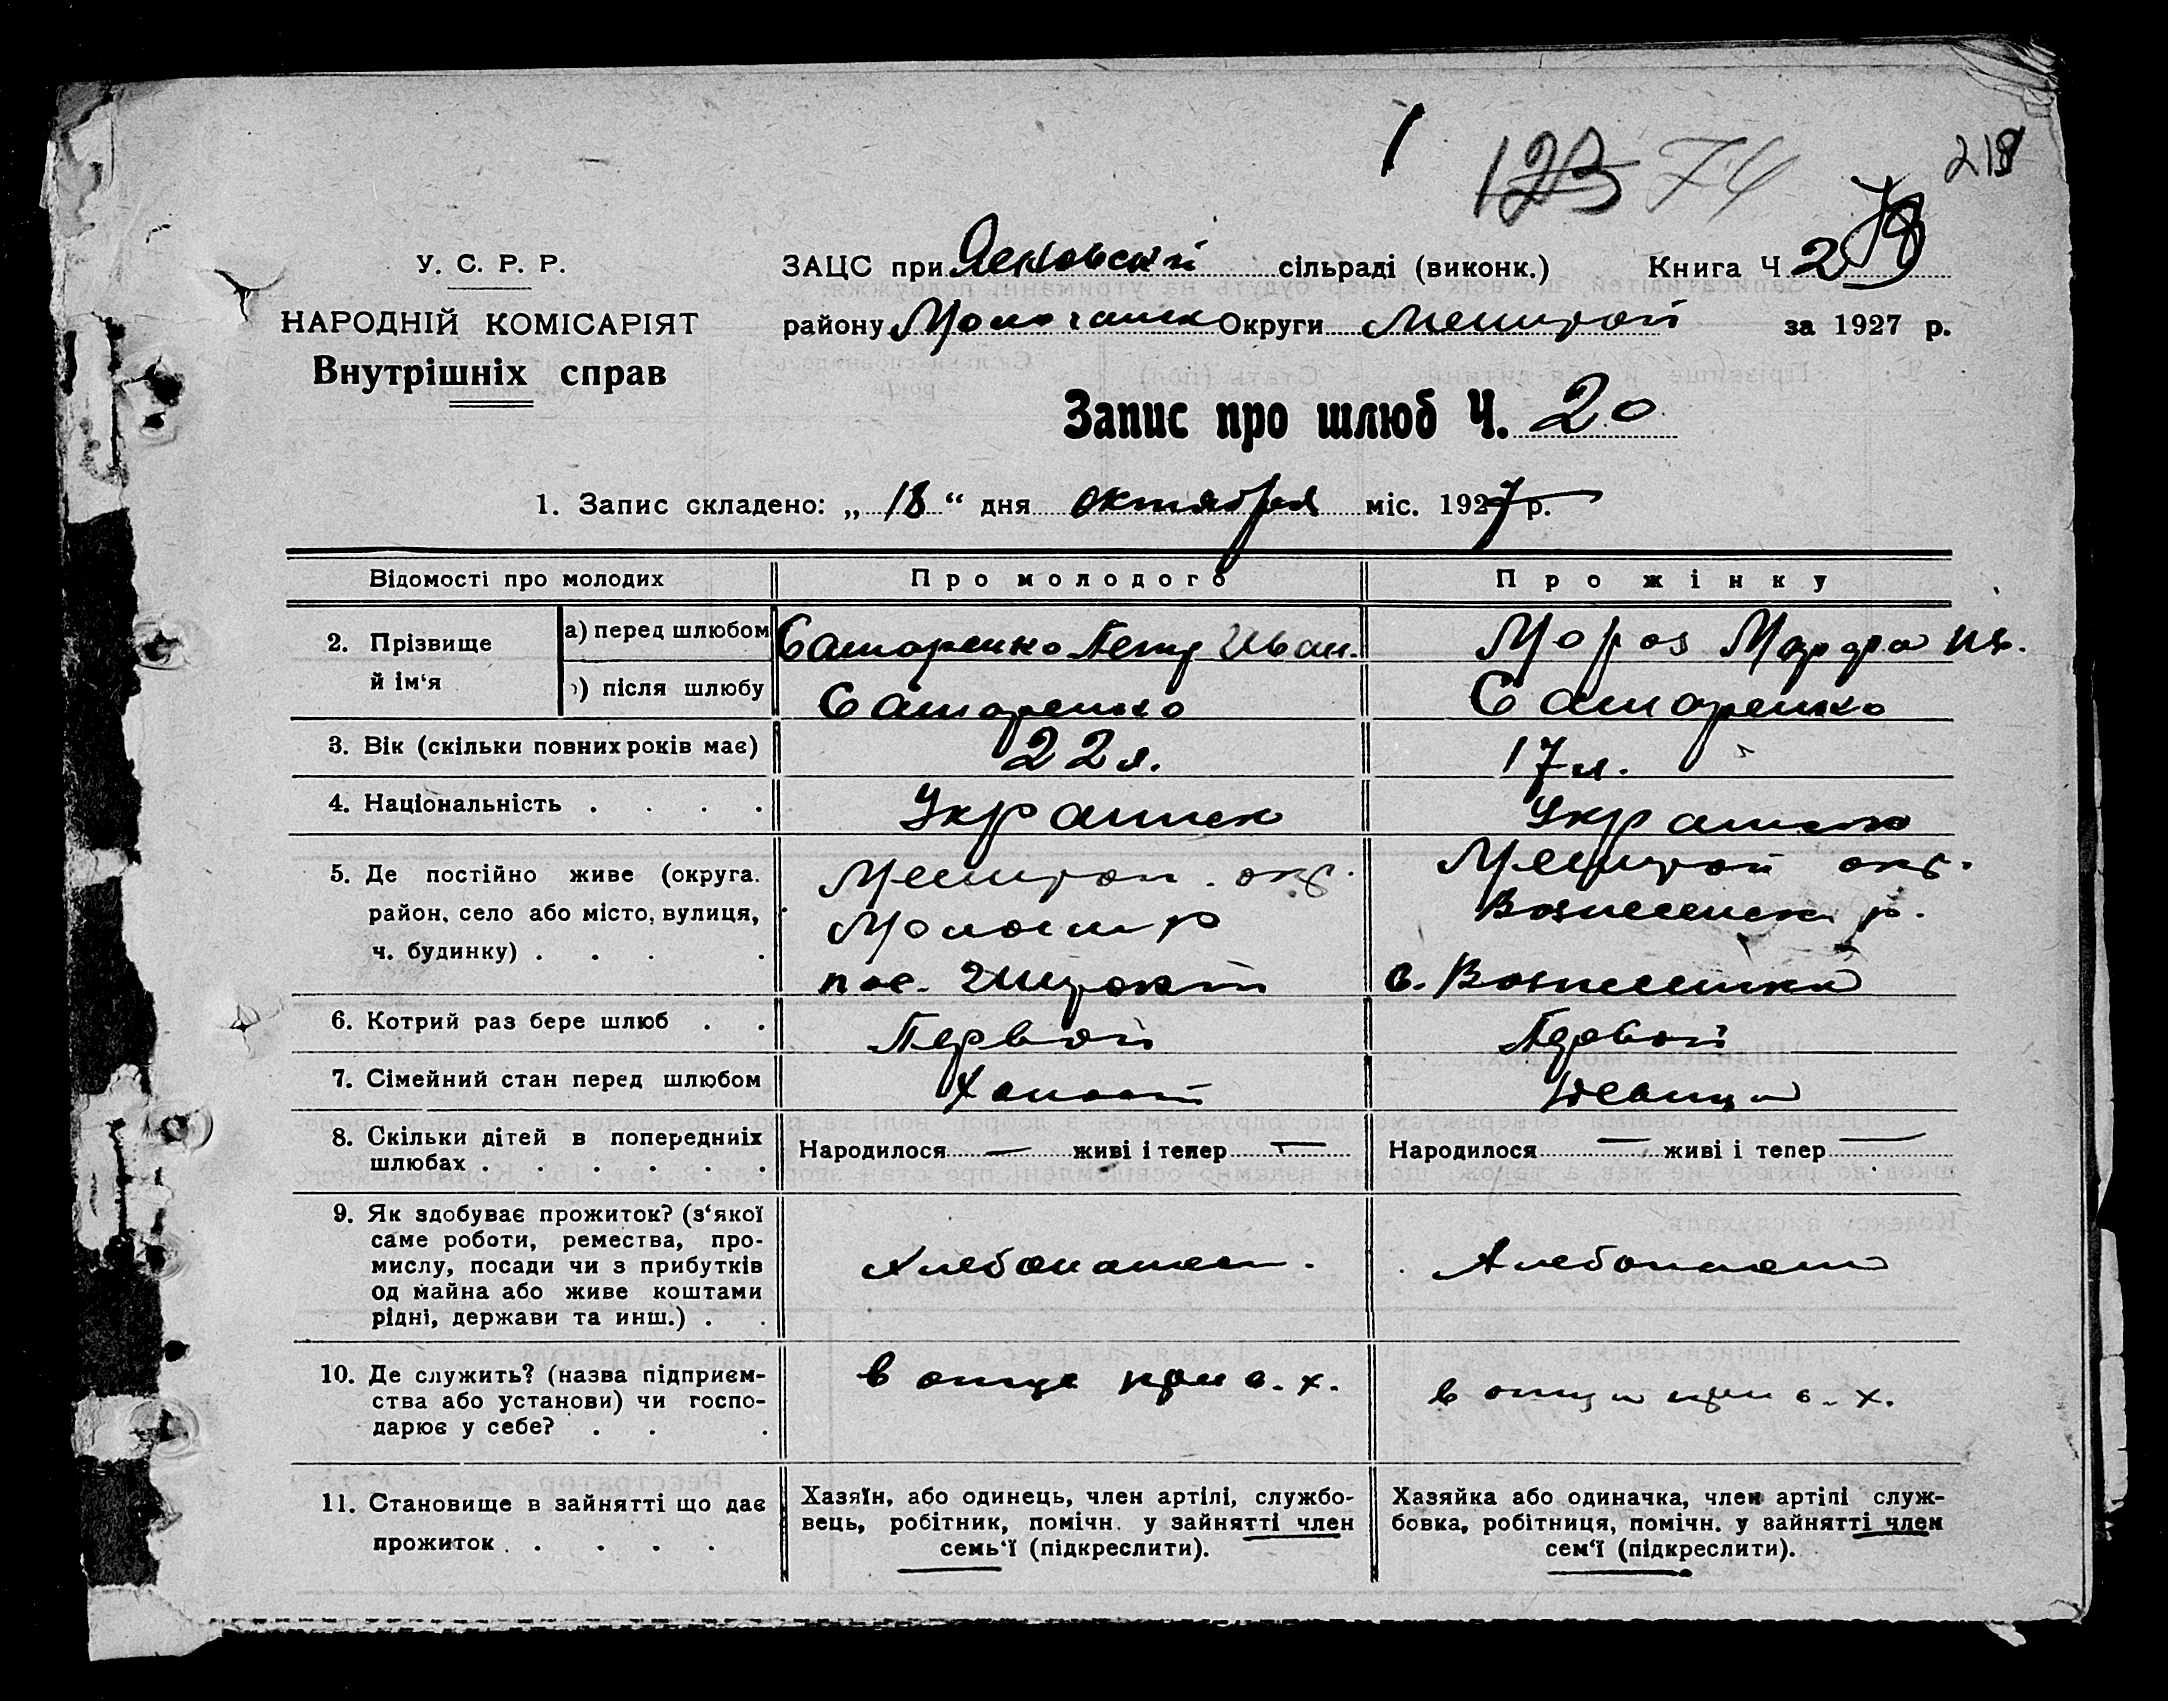 1
123 74
218
У. С. Р. Р.
НАРОДНІЙ КОМІСАРІЯТ
Внутрішніх справ
ЗАЦС при сільраді (виконк.) Книга Ч 2
району Округи Мелитопой за 1927 р.
Запис про шлюб Ч. 20
1. Запис складено: „ 18 “ дня октября міс. 1927 р.
Відомості про молодих Про молодого Про жінку
2. Прізвище й ім‘я
а) перед шлюбом Иван. Мороз
після шлюбу
3. Вік (скільки повних років має) 22 л. 17 л.
4. Національність . . . . Украинец Украинка
5. Де постійно живе (округа. Мелитоп. окр. Мелитопой окр.
район, село або місто, вулиця, р. Вознесенск р.
ч. будинку) . . . . пос. с. Вознесенка
6. Котрий раз бере шлюб . . Первой Первой
7. Сімейний стан перед шлюбом Холост Девица
8. Скільки дітей в попередниіх шлюбах . . . . . . Народилося — живі і тепер — Народилося — живі і тепер —
9. Як здобуває прожиток? (з‘якої
саме роботи, ремества, про-
мислу, посади чи з прибутків
од майна або живе коштами
рідні, держави та инш.) . .
Хлебопашец.
10. Де служить? (назва підприєм-
ства або установи) чи госпо-
дарює у себе? . . .
в отца при с. х.
в отца при с. х.
11. Становище в зайнятті що дає
прожиток . . . . .
Хазяїн, або одинець, член артілі, службо-
вець, робітник, помічн. у зайнятті член
семь‘ї (підкреслити).
Хазяйка або одиначка, член артілі служ-
бовка, робітниця, помічн. у зайнятті член
сем‘ї (підкреслити).